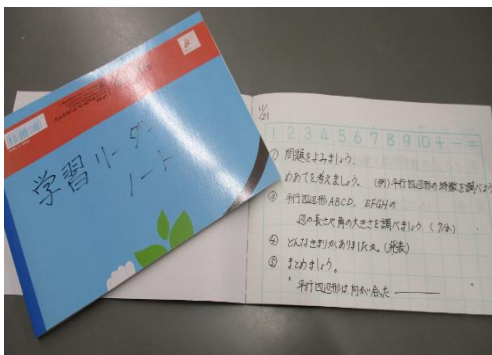 学習リーダー
ノート
11/21
1 2 3 4 5 6 7 8 9 10 + - =
① 問題をよみましょう。
めあてを考えましょう。(例)平行四辺形の特徴を調べよう
③ 平行四辺形ABCD、EFGHの
辺の長さや角の大きさを調べましょう。(7分)
④ どんなきまりがありましたか。(発表)
⑤ まとめましょう。
"平行四辺形は、向かい合った